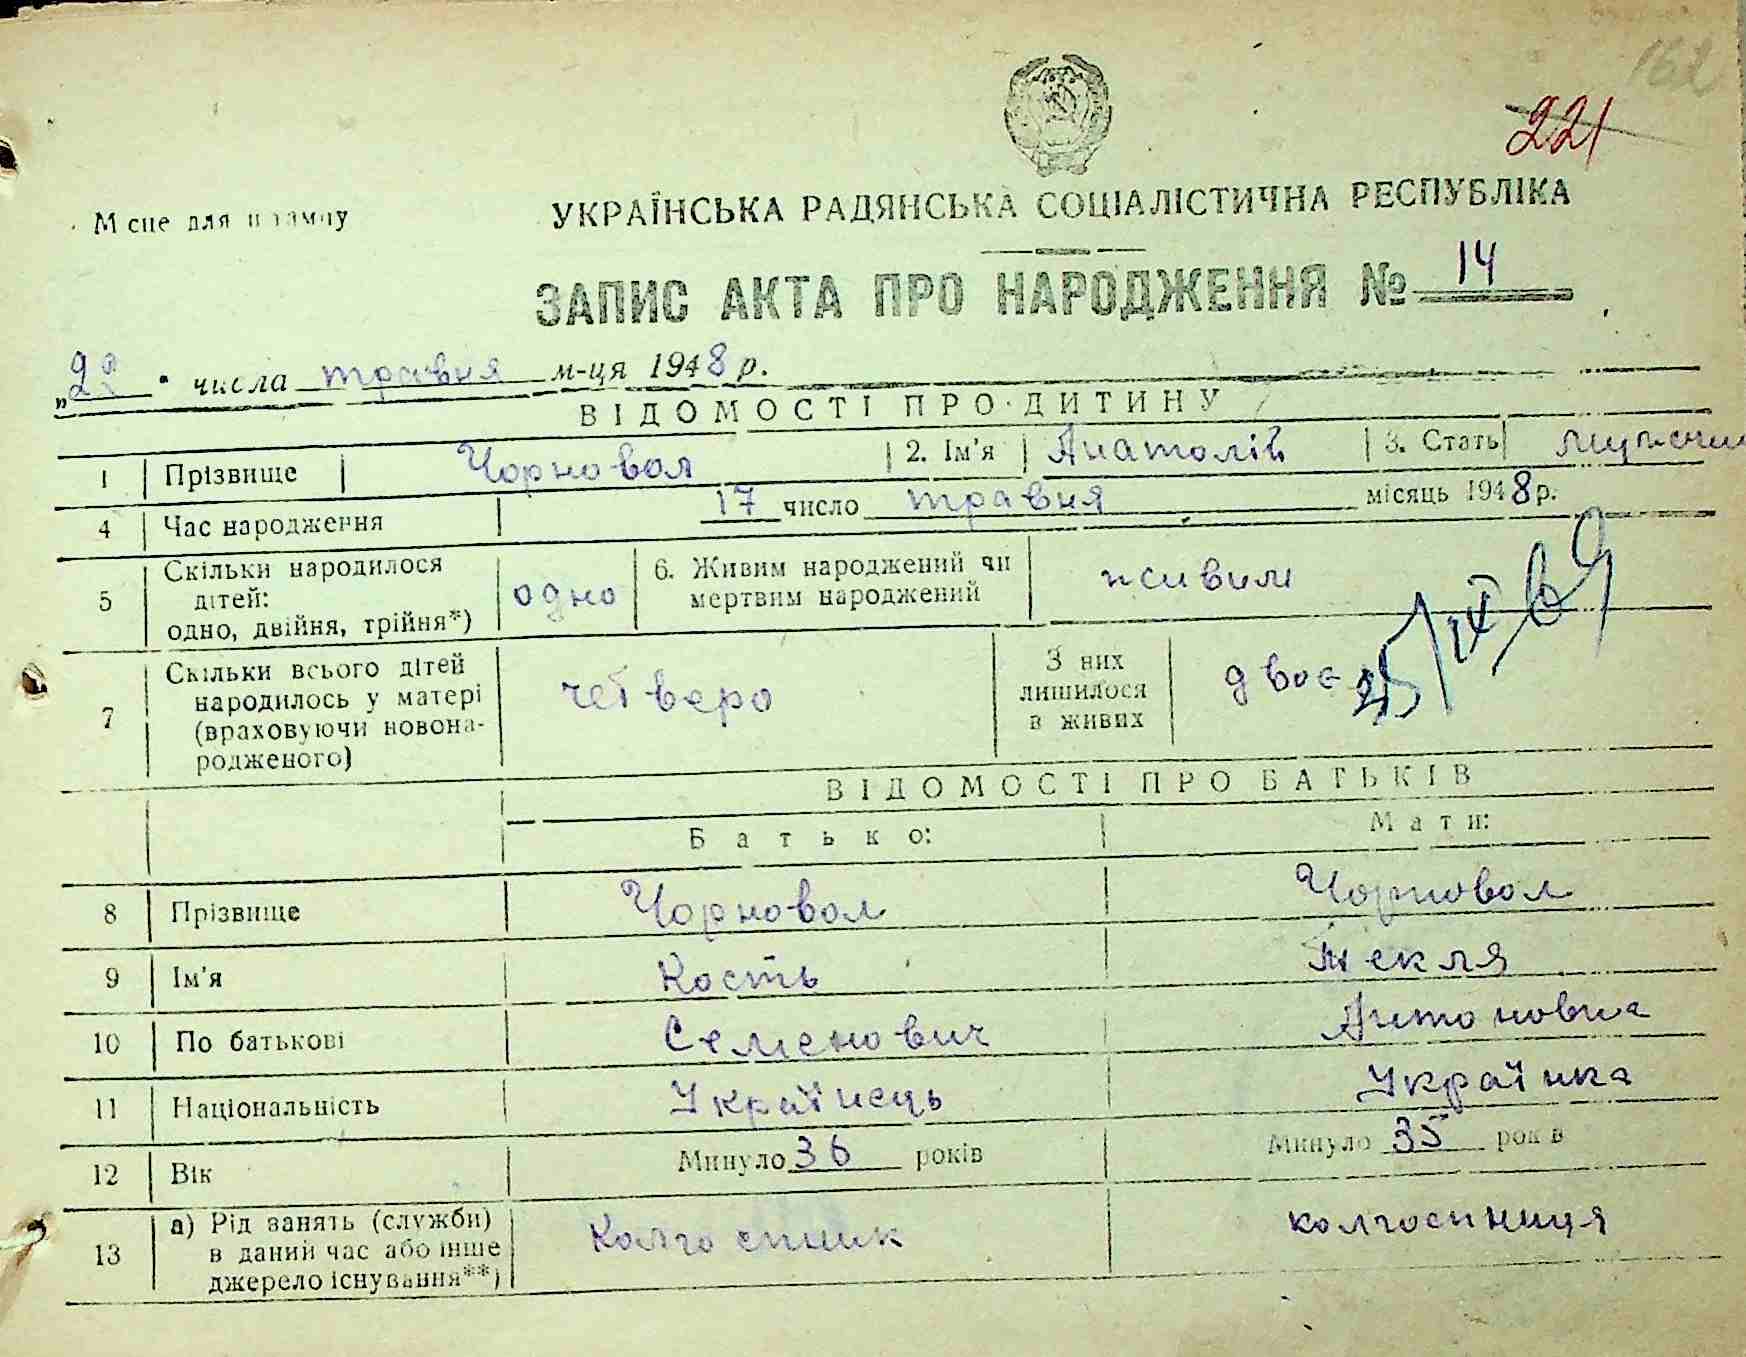 162
221
Місце для штампу
УКРАЇНСЬКА РАДЯНСЬКА СОЦІАЛІСТИЧНА РЕСПУБЛІКА
ЗАПИС АКТА ПРО НАРОДЖЕННЯ № 14
„22" числа травня м-ця 1948 р.
ВІДОМОСТІ ПРО ДИТИНУ
1 Прізвище Чорновол 2. Ім'я Анатолій 3. Стать мужский
4 Час народження 17 число травня місяць 1948 р.
5 Скільки народилося дітей: одно, двійня, трійня*) одно 6. Живим народжений чи мертвим народжений живим
25/IX 69
7 Скільки всього дітей народилось у матері (враховуючи новонародженого) четверо З них лишилося в живих двоє
ВІДОМОСТІ ПРО БАТЬКІВ
Батько: Мати:
8 Прізвище Чорновол Чорновол
9 Ім'я Кость Текля
10 По батькові Семенович Антоновна
11 Національність Українець Українка
12 Вік Минуло 36 років Минуло 35 років
13 а) Рід занять (служби) в даний час або інше джерело існування**) Колгоспник колгоспниця